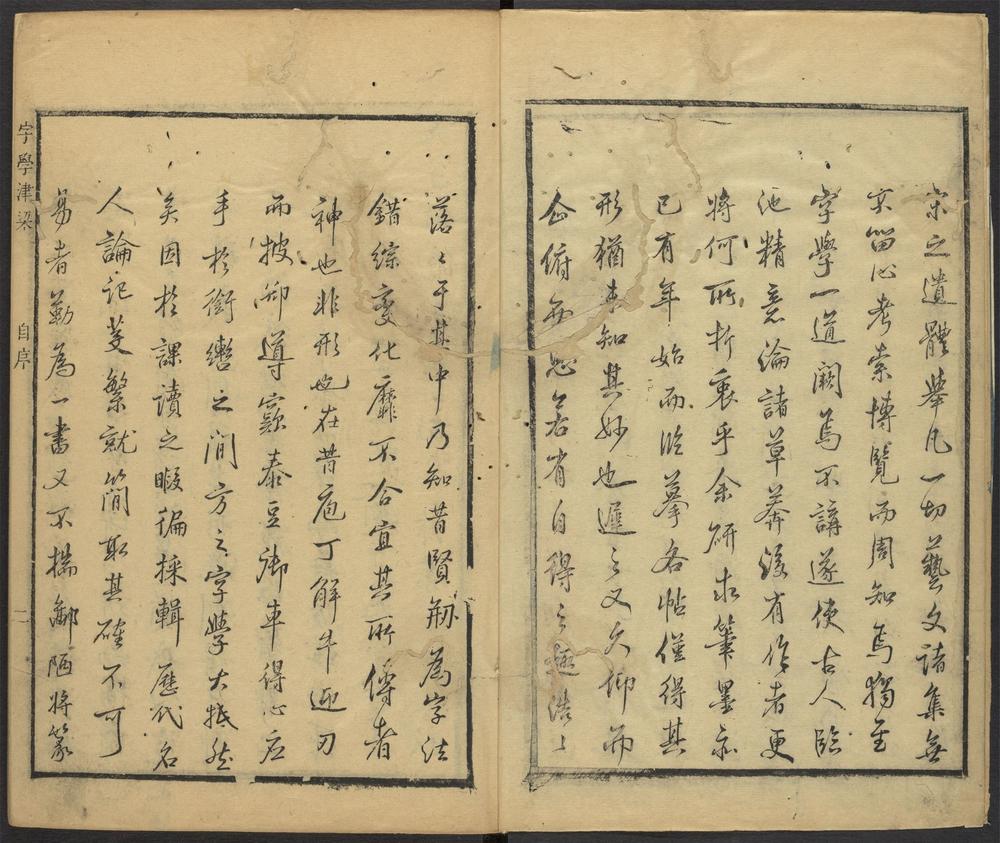 宋之遺體舉凡一切藝文諸集無
不留心考索博覽而周知焉獨至
字學一道闕焉不講遂使古人臨
池精意淪諸草莽後有作者更
將何所折衷乎余研求筆墨亦
已有年始而臨摹各帖僅得其
形猶未知其妙也遲之又久仰而
企俯而思若有自得之趣浩〻
落〻于其中乃知昔賢刱為字法
錯綜變化靡不合宜其所傳者
神也非形也在昔庖丁解牛迎刃
而披郤導窾泰豆御車得心应
手於銜轡之間方之字學大抵然
矣因於課讀之暇徧採輯歷代名
人論記芟繁就簡取其確不可
易者勒為一書又不揣鄙陋將篆
字學津梁
自序
二